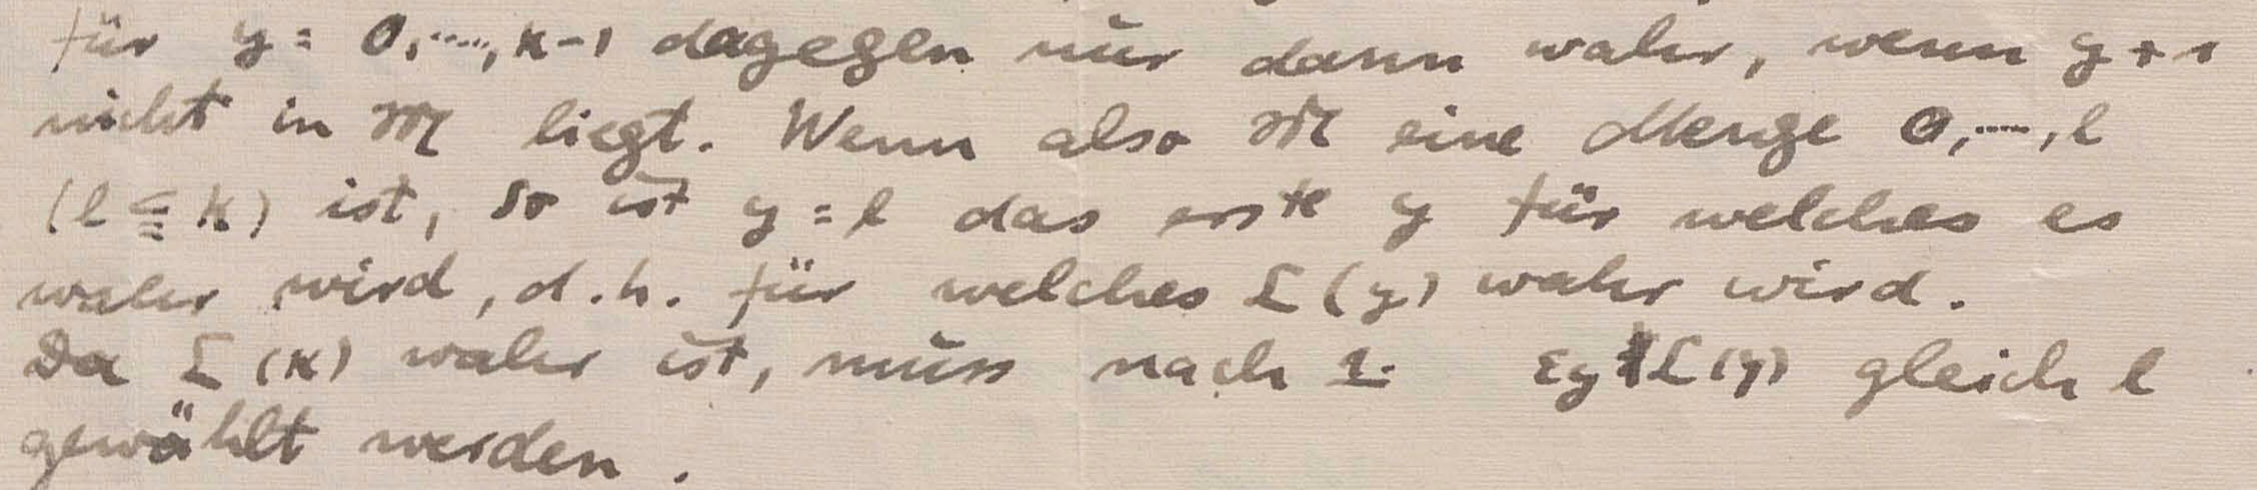 für y = 0,....,k-1 dagegen nur dann wahr, wenn y+1
nicht in 𝔐 liegt. Wenn also 𝔐 eine Menge 0,....,l
(l ≦ k) ist, so ist y = l das erste y für welches es
wahr wird, d.h. für welches L(y) wahr wird.
Da L(k) wahr ist, muss nach 1. εy L(y) gleich l
gewählt werden.